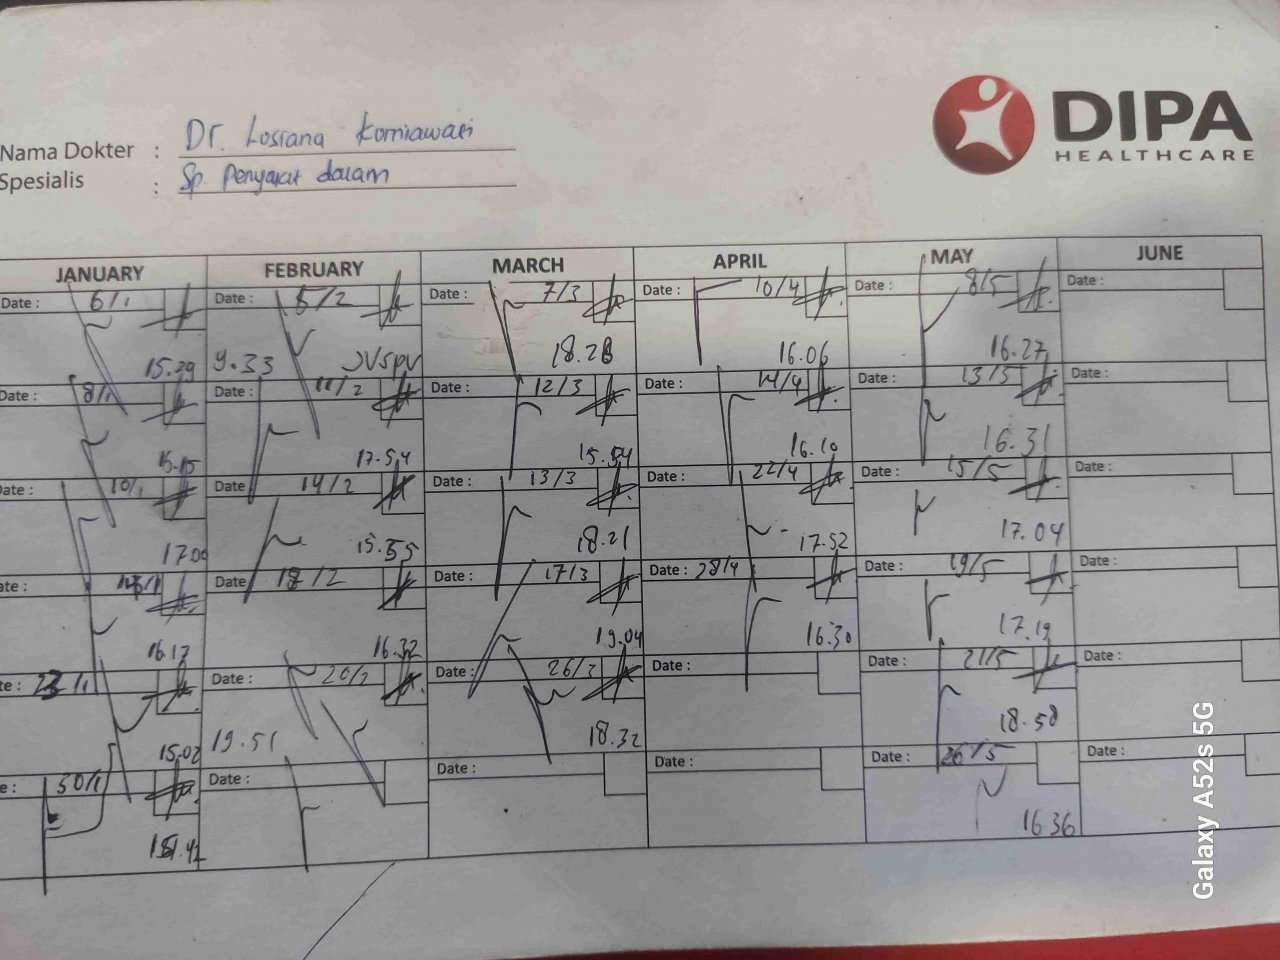 DIPA
HEALTHCARE
Nama Dokter : Dr. Losiana Korniawati
Spesialis : Sp. Penyakit dalam
JANUARY FEBRUARY MARCH APRIL MAY JUNE
Date : 6/1 Date : 5/2 Date : 7/3 Date : 10/4 Date : 8/5 Date :
15.29 9.33 18.28 16.06 16.27
Date : 8/1 Date : 11/2 Date : 12/3 Date : 14/4 Date : 13/5 Date :
15.15 17.54 15.54 16.10 16.31
Date : 10/1 Date 14/2 Date : 13/3 Date : 22/4 Date : 15/5 Date :
17.00 15.55 18.21 17.52 17.04
ate : Date 18/2 Date : 17/3 Date : 28/4 Date : 19/5 Date :
16.17 16.32 19.04 16.30 17.19
te : 23/1 Date : 20/2 Date : 26/3 Date : Date : 21/5 Date :
15.02 19.51 18.32 18.58
e : 30/1 Date : Date : Date : Date : 26/5 Date :
16 36
Galaxy A52s 5G